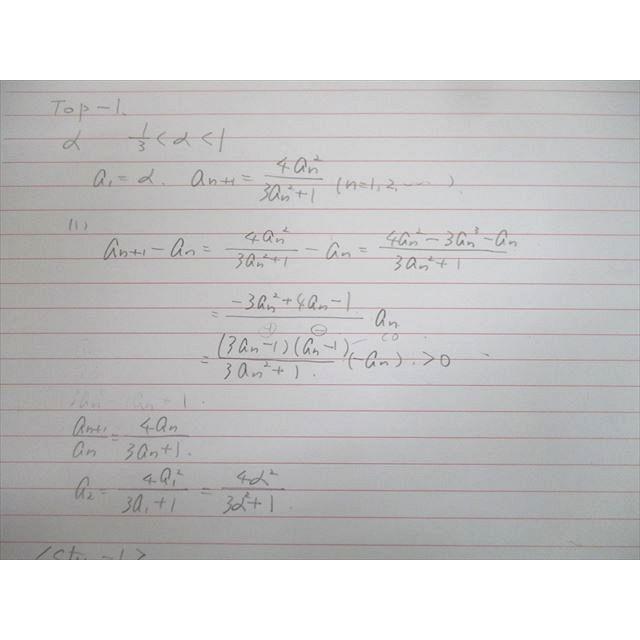 Top-1.
α 1/3 < α < 1
a₁ = α. aₙ₊₁ = 4aₙ²/3aₙ²+1 (n=1,2,……).
(1)
aₙ₊₁ - aₙ = 4aₙ²/3aₙ²+1 - aₙ = 4aₙ²-3aₙ³-aₙ/3aₙ²+1
= -3aₙ²+4aₙ-1/ aₙ
⊕ ⊖ <0
= (3aₙ-1)(aₙ-1)/3aₙ²+1. (-aₙ). >0
aₙ₊₁/aₙ = 4aₙ/3aₙ+1.
a₂ = 4a₁²/3a₁+1 = 4α²/3α²+1.